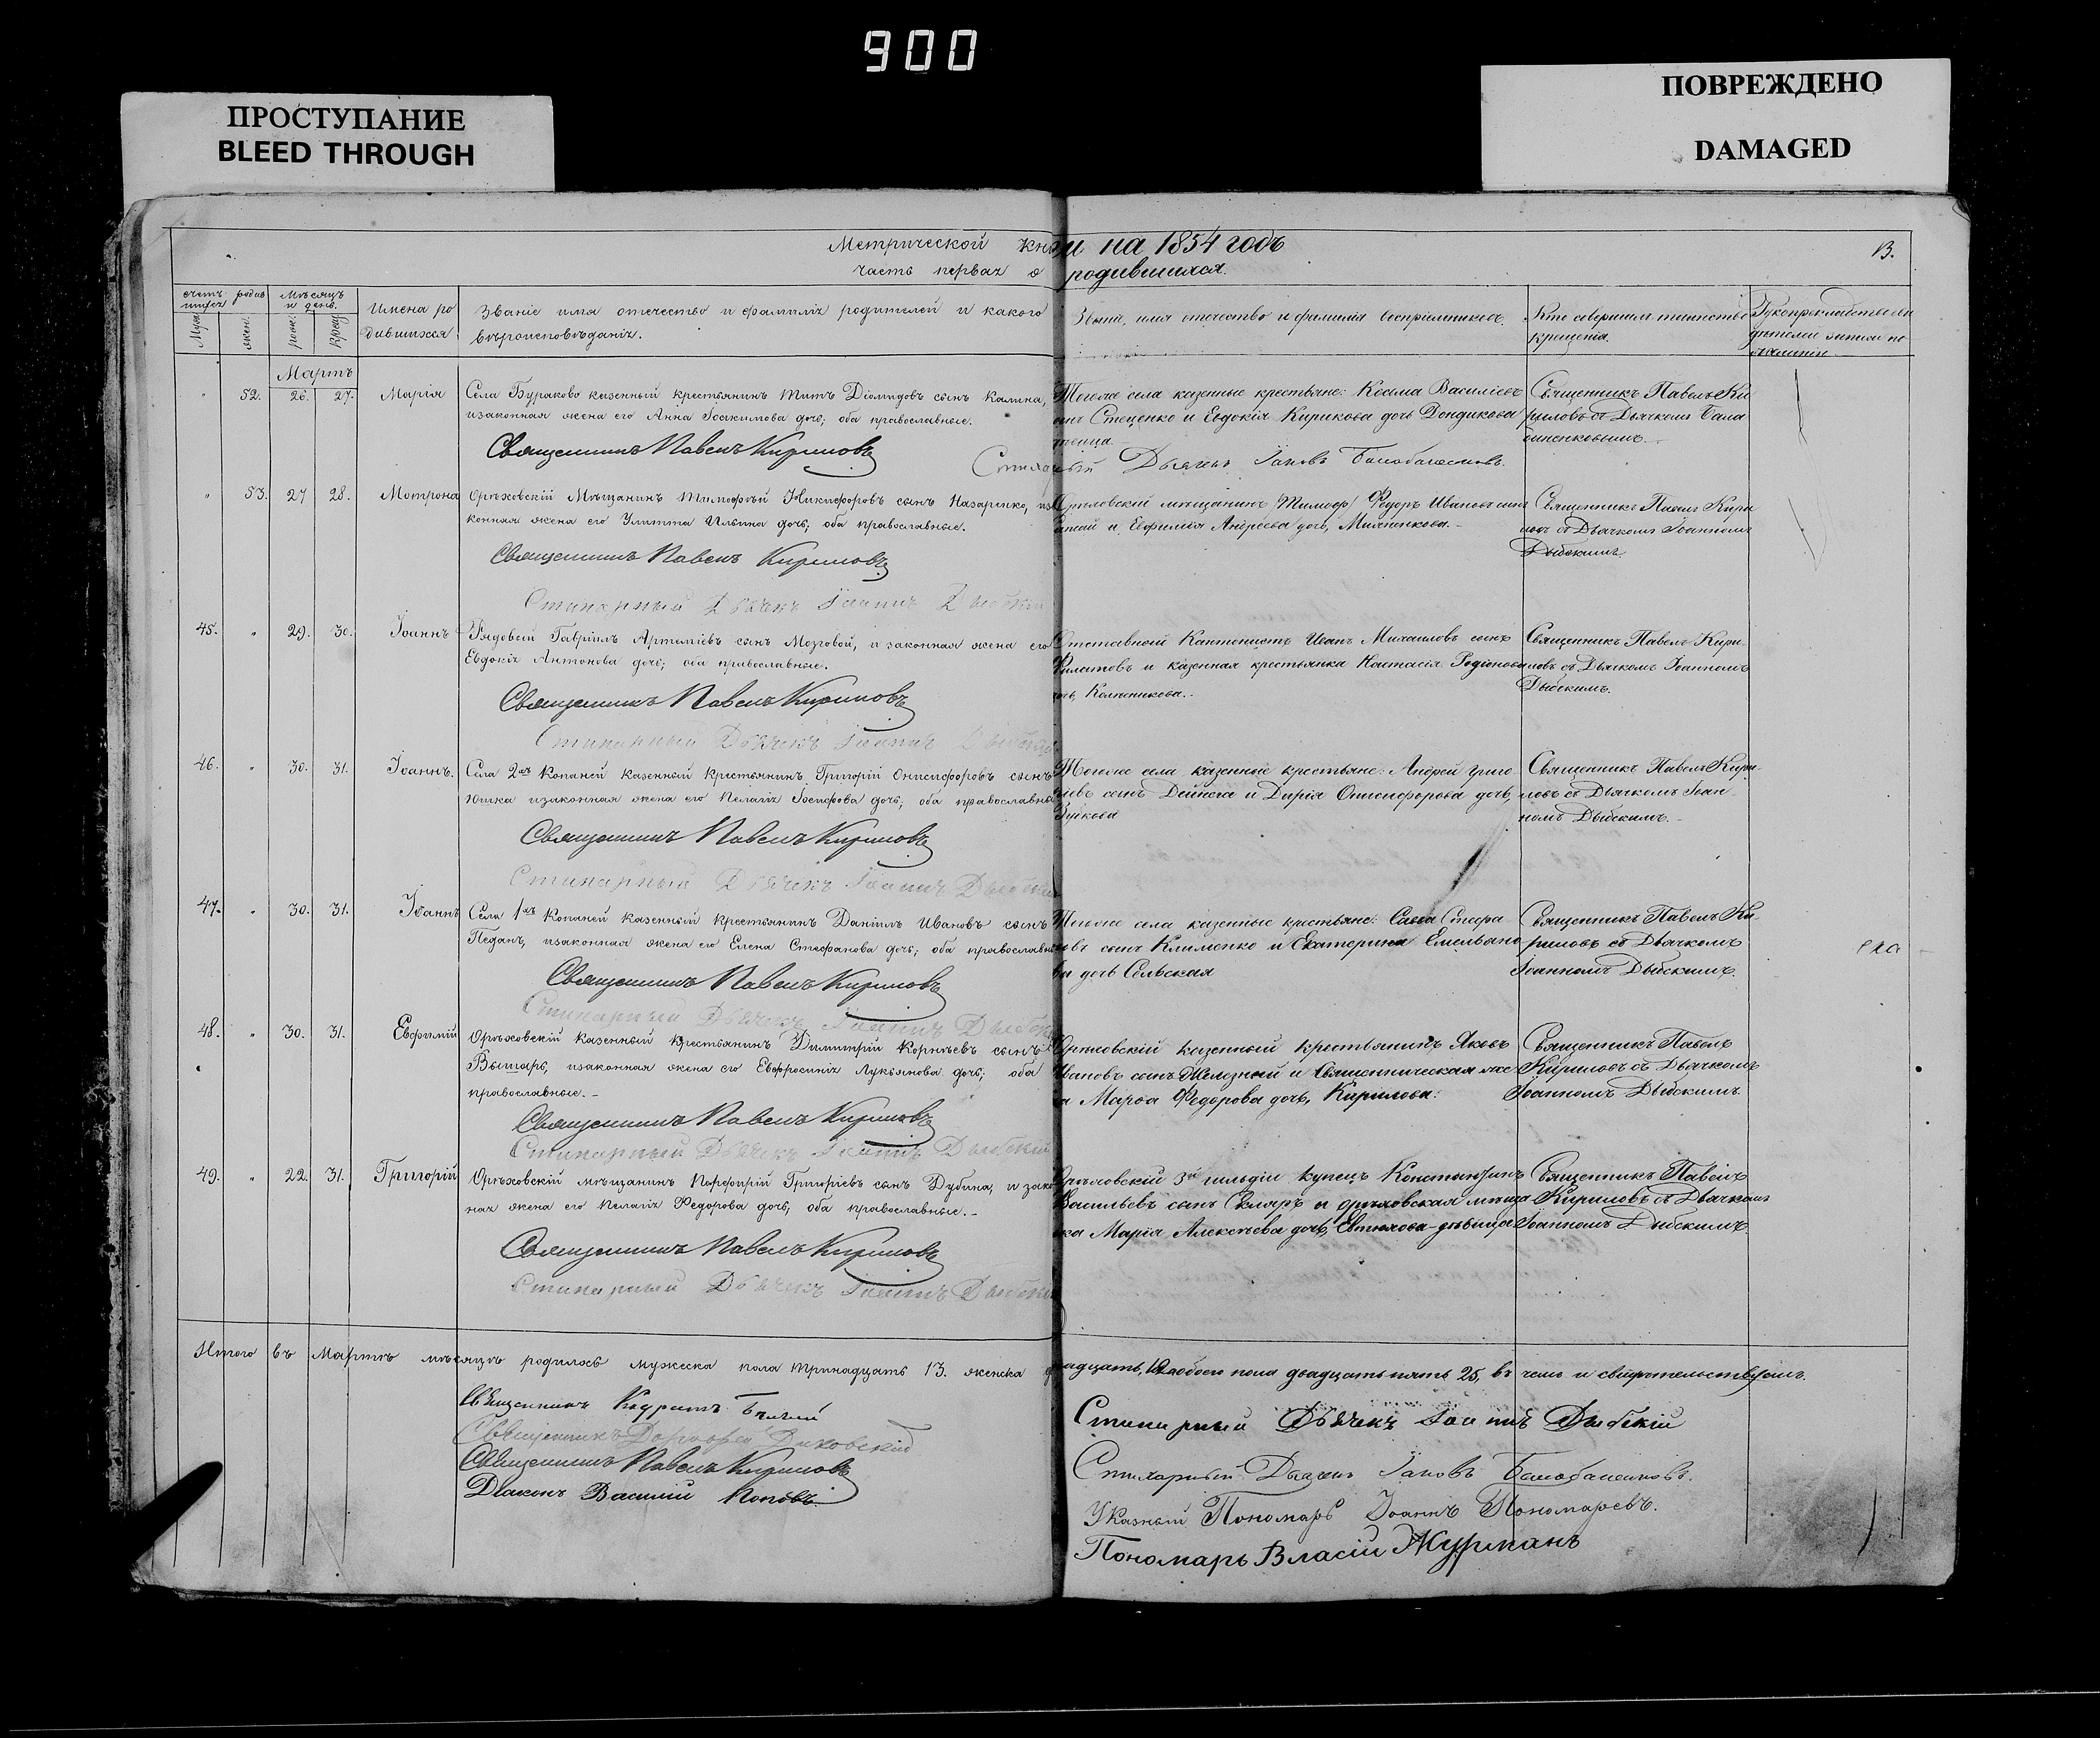 900
ПРОСТУПАНИЕ
BLEED THROUGH
ПОВРЕЖДЕНО
DAMAGED
Метрической книги на 1854 годъ
часть первая о родившихся.
13.
счетъ родив
шихся
Муж.
жен.
Мѣсяцъ
и день.
рожд.
крещ.
Имена ро
дившихся
Званіе имя отечество и фамилія родителей и какого
вѣроисповѣданія.
Званіе, имя отечество и фамилія воспріемниковъ.
Кто совершалъ таинство
крещенія.
Рукоприкладство сви
дѣтелей записи по
желанію
Мартъ
" 52. 26. 27. Марія
Села Бурлаково казенный крестьянинъ Титъ Діомидовъ сынъ Калина,
изаконная жена его Анна Іоакимова дочь; оба православные.
Тогоже села казенные крестьяне: Косьма Василіевъ
сынъ Стеценко и Евдокія Кирикова дочь Дондикова
Священникъ Павелъ Ки
риловъ съ Дьячкомъ Бала
Священникъ Павелъ Кириловъ
Стихарный Дьячекъ Іаковъ
" 53. 27 28. Мотрона
Орѣховскій Мѣщанинъ Тимофѣй Никифоровъ сынъ Назаренко, иза
конная жена его Улитта Ильина дочь, оба православные.
Орѣховскій мѣщанинъ Тимоф/ Федоръ Ивановъ сынъ
и Евфимія Андреева дочь,
Священникъ Павелъ Кири
ловъ съ Дьячкомъ Іоанномъ
Дыбскимъ.
Священникъ Павелъ Кириловъ
Стихарный Дьячекъ Іоаннъ Дыбскій
45. " 29. 30. Іоаннъ
Рядовой Гавріилъ Артеміевъ сынъ Мозговой, и законная жена его
Евдокія Антонова дочь; оба православные.
Отставной Кантонистъ Иванъ Михаиловъ сынъ
Филатовъ и казенная крестьянка Настасія Родіонова
дочь,
Священникъ Павелъ Кири-
ловъ съ Дьячкомъ Іоанномъ
Дыбскимъ.
Священникъ Павелъ Кириловъ
Стихарный Дьячекъ Іоаннъ Дыбскій
46. " 30. 31. Іоаннъ.
Села 2хъ Копаней казенный крестьянинъ Григорій Онисифоровъ сынъ
Юшка изаконная жена его Пелагія Іосифова дочь; оба православные
Тогоже села казенные крестьяне: Андрей Григо-
ріевъ сынъ Дейнека и Дарія Онисифорова дочь,
Зуйкова
Священникъ Павелъ Кири-
ловъ съ Дьячкомъ Іоан-
номъ Дыбскимъ.
Священникъ Павелъ Кириловъ
Стихарный Дьячекъ Іоаннъ Дыбскій
47. " 30. 31. Іоаннъ
Села 1хъ Копаней казенный крестьянинъ Даніилъ Ивановъ сынъ
Педанъ, изаконная жена его Елена Стефанова дочь; оба православные
Тогоже села казенные крестьяне: Савва Стефа-
новъ сынъ Клименко и Екатерина Емельяно
ва дочь Сельская
Священникъ Павелъ Ки-
риловъ съ Дьячкомъ
Іоанномъ Дыбскимъ.
Священникъ Павелъ Кириловъ
Стихарный Дьячекъ Іоаннъ Дыбскій
48. " 30. 31. Евфимій
Орѣховскій казенный крестьянинъ Димитрій Корнѣевъ сынъ
изаконная жена его Евфросинія Лукьянова дочь; оба
православные.-
Орѣховскій казенный крестьянинъ Яковъ
Ивановъ сынъ Железный и Священническая же
на Марѳа Федорова дочь, Кирилова:
Священникъ Павелъ
Кириловъ съ Дьячкомъ
Іоанномъ Дыбскимъ
Священникъ Павелъ Кириловъ
Стихарный Дьячекъ Іоаннъ Дыбскій
49. " 22. 31. Григорій
Орѣховскій мѣщанинъ Порфирій Григоріевъ сынъ Дубина, и закон
ная жена его Пелагія Федорова дочь, оба православные.-
Орѣховскій 3й гильдіи купецъ Константинъ
Васильевъ сынъ Скляръ и орѣховская мѣща
нка Марія Алексѣева дочь, дѣвица
Священникъ Павелъ
Кириловъ съ Дьячкомъ
Іоанномъ Дыбскимъ.
Священникъ Павелъ Кириловъ
Стихарный Дьячекъ Іоаннъ Дыбскій
Итого въ Мартѣ мѣсяцѣ родилось мужеска пола тринадцать 13. женска двѣнадцать, 12 обоего пола двадцать пять 25, въ чемъ и свидѣтельствуемъ.
Священникъ
Священникъ
Священникъ Павелъ Кириловъ
Діаконъ Василій Поповъ
Стихарный Дьячекъ Іоаннъ Дыбскій
Стихарный Дьячекъ Іаковъ
Указный Пономарь Іоаннъ Пономаревъ.
Пономарь Власій Журманъ